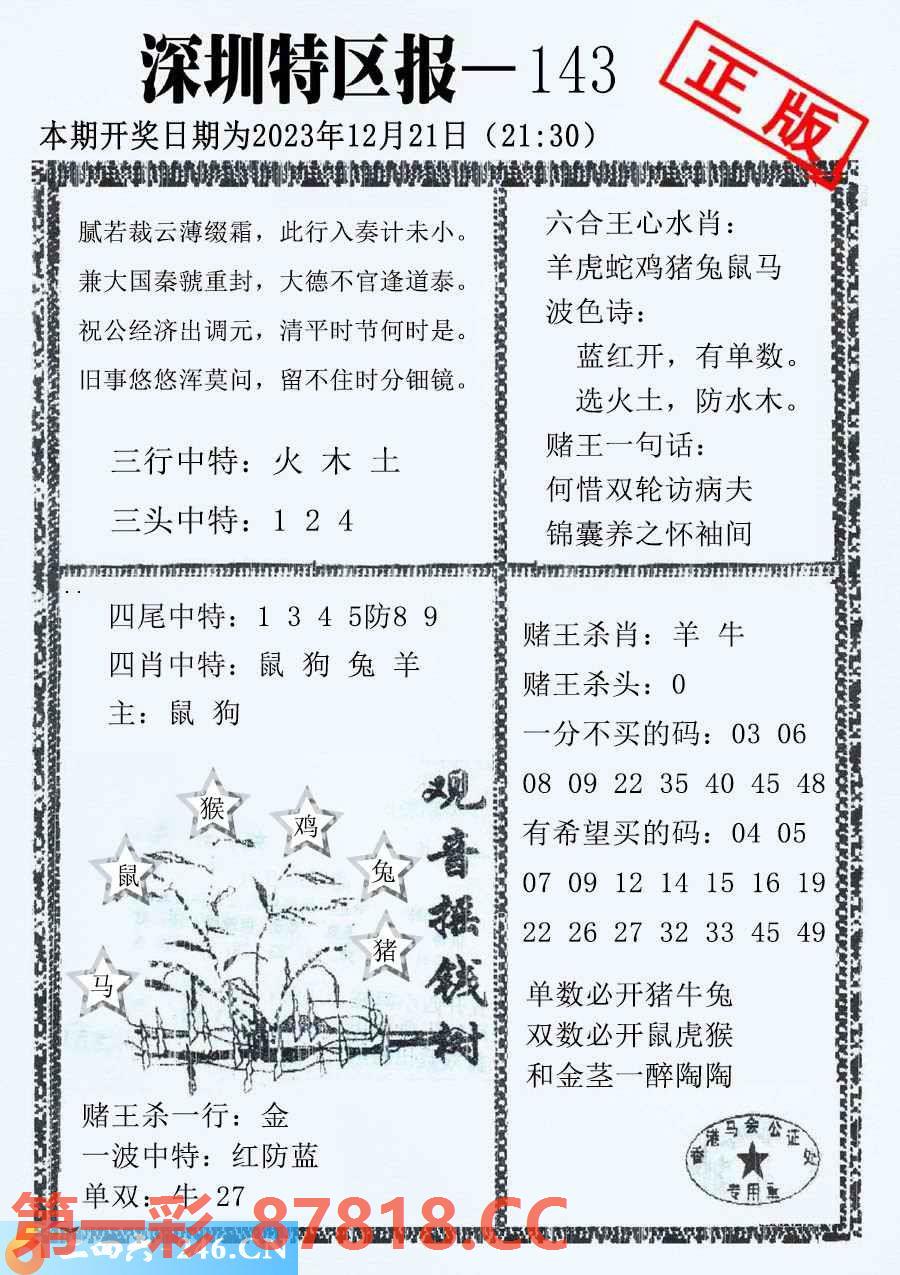 深圳特区报—143
正版
本期开奖日期为2023年12月21日（21:30）
腻若裁云薄缀霜，此行入奏计未小。
兼大国秦虢重封，大德不官逢道泰。
祝公经济出调元，清平时节何时是。
旧事悠悠浑莫问，留不住时分钿镜。
三行中特：火 木 土
三头中特：1 2 4
六合王心水肖：
羊虎蛇鸡猪兔鼠马
波色诗：
蓝红开，有单数。
选火土，防水木。
赌王一句话：
何惜双轮访病夫
锦囊养之怀袖间
四尾中特：1 3 4 5防8 9
四肖中特：鼠 狗 兔 羊
主：鼠 狗
猴
鸡
鼠
兔
猪
马
观音摇钱树
赌王杀一行：金
一波中特：红防蓝
单双：牛 27
赌王杀肖：羊 牛
赌王杀头：0
一分不买的码：03 06
08 09 22 35 40 45 48
有希望买的码：04 05
07 09 12 14 15 16 19
22 26 27 32 33 45 49
单数必开猪牛兔
双数必开鼠虎猴
和金茎一醉陶陶
香港马会公证处
专用章
第一彩 87818.CC
246.CN